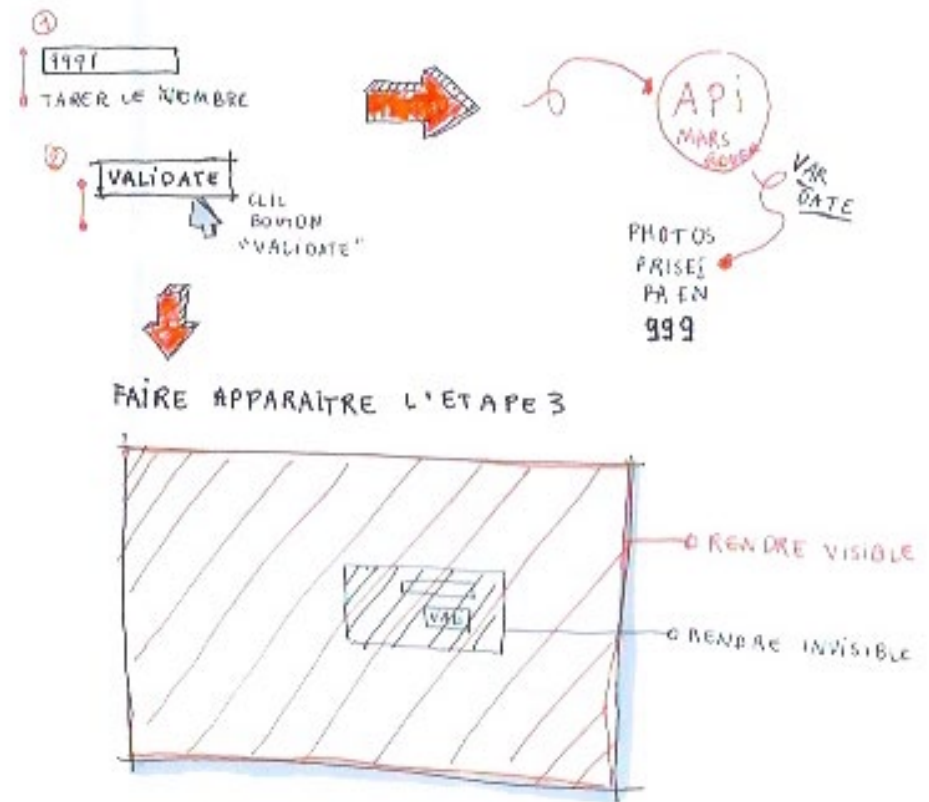 1
999
TAPER LE NOMBRE
2
VALiDATE
CLIC
BOUTON
"VALIDATE"
APi
MARS
ROVER
VAR
DATE
PHOTOS
PRISES
PA EN
999
FAiRE APPARAiTRE L'ETAPE 3
VALi
RENDRE VISIBLE
RENDRE INVISIBLE